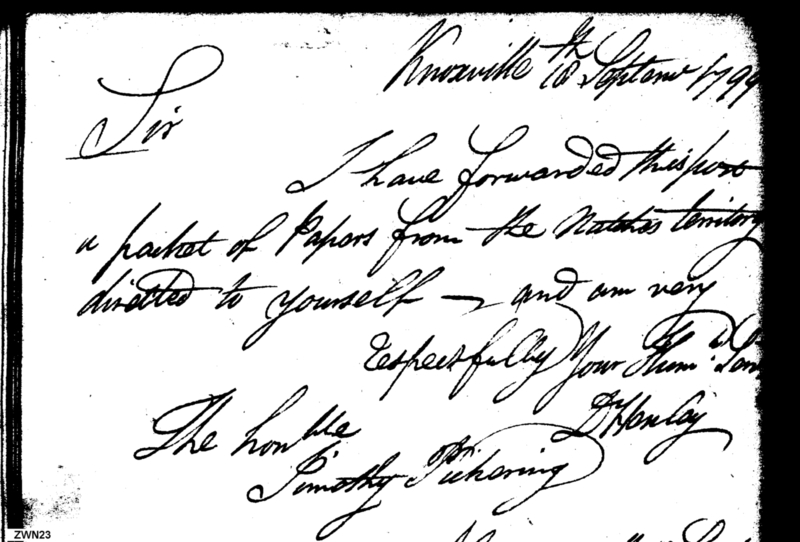 Knoxville 18th Septemr 1799
Sir
I have forwarded this post
a packet of Papers from the Natches territory
directed to yourself — and am very
respectfully Your Humb. Serv
D Henley
The honble
Timothy Pickering
ZWN23